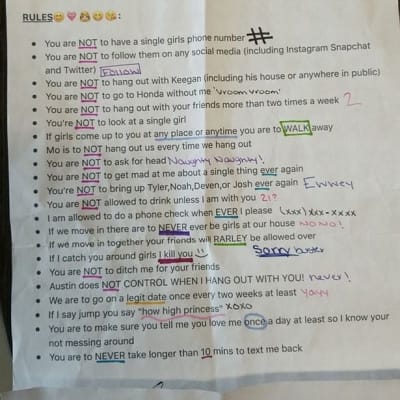 RULES😊💗🙈😊😘:
• You are NOT to have a single girls phone number #
• You are NOT to follow them on any social media (including Instagram Snapchat
and Twitter) FOLLOW
• You are NOT to hang out with Keegan (including his house or anywhere in public)
• You are NOT to go to Honda without me 'vroom vroom'
• You are NOT to hang out with your friends more than two times a week 2
• You're NOT to look at a single girl
• If girls come up to you at any place or anytime you are to WALK away
• Mo is to NOT hang out us every time we hang out
• You are NOT to ask for head Naughty Naughty!
• You are NOT to get mad at me about a single thing ever again
• You're NOT to bring up Tyler,Noah,Deven,or Josh ever again Ewwey
• You are NOT allowed to drink unless I am with you 21?
• I am allowed to do a phone check when EVER I please (xxx)xxx-xxxx
• If we move in there are to NEVER ever be girls at our house NONO!
• If we move in together your friends will RARLEY be allowed over
• If I catch you around girls I kill you :) Sorry buster
• You are NOT to ditch me for your friends
• Austin does NOT CONTROL WHEN I HANG OUT WITH YOU! never!
• We are to go on a legit date once every two weeks at least Yayy
• If I say jump you say "how high princess" xoxo
• You are to make sure you tell me you love me once a day at least so I know your
not messing around
• You are to NEVER take longer than 10 mins to text me back